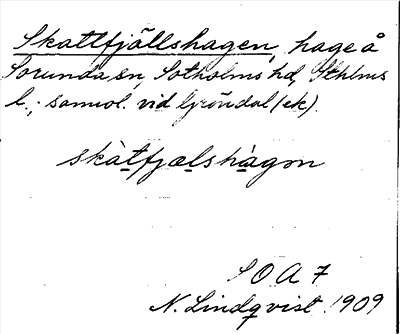 Skattfjällshagen, hage å
Sorunda sn, Sotholms hd, Sthlms
l.; samol. vid Gröndal (ek).
skàtfjælshàgon
S O A 7
N. Lindqvist. 1909